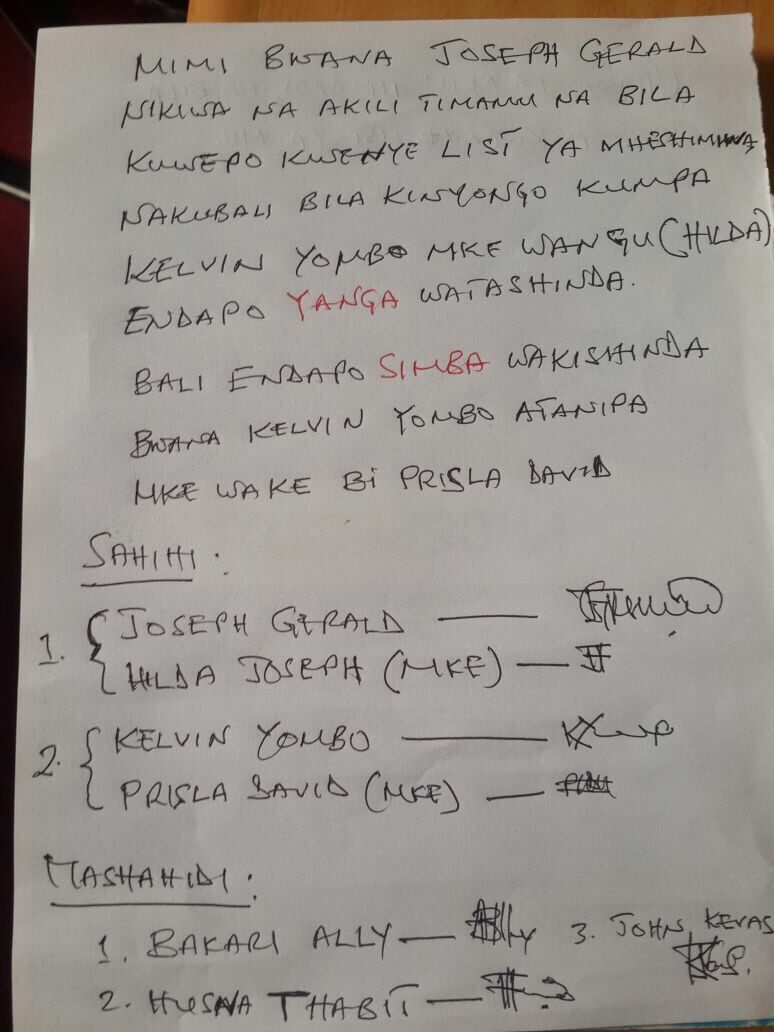 MIMI BWANA JOSEPH GERALD
NIKIWA NA AKILI TIMAMU NA BILA
KUWEPO KWENYE LIST YA MHESHIMIWA,
NAKUBALI BILA KINYONGO KUMPA
KELVIN YOMBO MKE WANGU (HILDA)
ENDAPO YANGA WATASHINDA.
BALI ENDAPO SIMBA WAKISHINDA
BWANA KELVIN YOMBO ATANIPA
MKE WAKE Bi PRISLA DAVID
SAHIHI:
1. JOSEPH GERALD
HILDA JOSEPH (MKE)
2. KELVIN YOMBO
PRISLA DAVID (MKE)
MASHAHIDI:
1. BAKARI ALLY
3. JOHN KEVAS
2. HUSNA THABIT